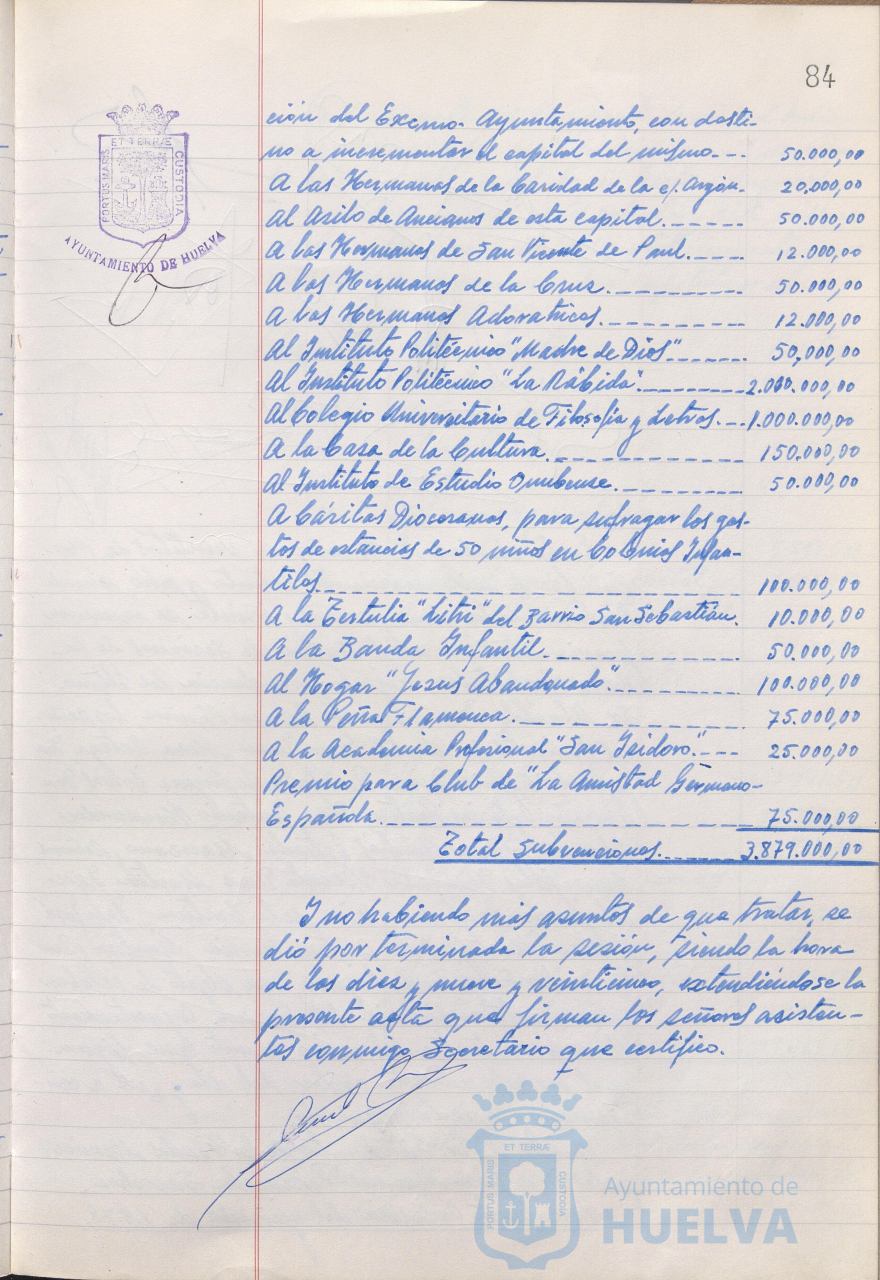 84
ET TERRÆ
PORTUS MARIS
CUSTODIA
AYUNTAMIENTO DE HUELVA
ción del Excmo. Ayuntamiento, con desti-
no a incrementar el capital del mismo--- 50.000,00
A las Hermanas de la Caridad de la c/. Argón- 20.000,00
Al Asilo de Ancianos de esta capital.------ 50.000,00
A las Hermanas de San Vicente de Paul.---- 12.000,00
A las Hermanas de la Cruz.---------- 50.000,00
A las Hermanas Adoratrices.---------- 12.000,00
Al Instituto Politécnico "Madre de Dios"------ 50.000,00
Al Instituto Politécnico "La Rábida".--------2.000.000,00
Al Colegio Universitario de Filosofía y Letras.---1.000.000,00
A la Casa de la Cultura.------------- 150.000,00
Al Instituto de Estudio Onubense.--------- 50.000,00
A Cáritas Diocesanas, para sufragar los gas-
tos de estancias de 50 niños en Colonias Infan-
tiles.--------------------------- 100.000,00
A la Tertulia "Litri" del Barrio San Sebastián. 10.000,00
A la Banda Infantil.------------- 50.000,00
Al Hogar "Jesús Abandonado".--------- 100.000,00
A la Peña Flamenca.--------------- 75.000,00
A la Academia Profesional "San Isidoro".--- 25.000,00
Premio para Club de "La Amistad Germano-
Española.---------------------- 75.000,00
Total Subvenciones.------ 3.879.000,00
I no habiendo más asuntos de que tratar, se
dió por terminada la sesión, siendo la hora
de las diez y nueve y veinticinco, extendiéndose la
presente acta que firman los señores asisten-
tes conmigo Secretario que certifico.
ET TERRÆ
PORTUS MARIS
CUSTODIA
Ayuntamiento de
HUELVA